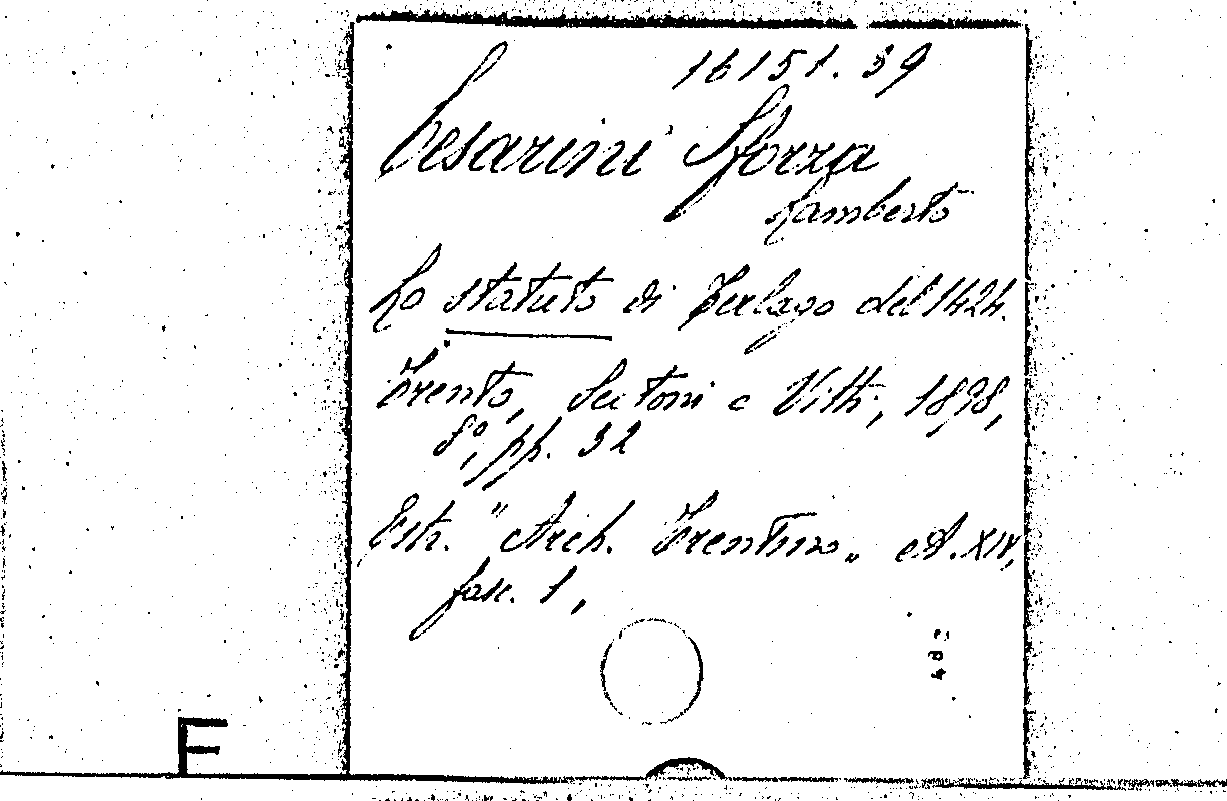 16151.39
Cesarini Sforza
Lamberto
Lo statuto di Terlago del 1424.
Trento, Scotoni e Vitti, 1898,
8°, pp. 32
Estr. "Arch. Trentino„ A. XIV,
fasc. 1,
F